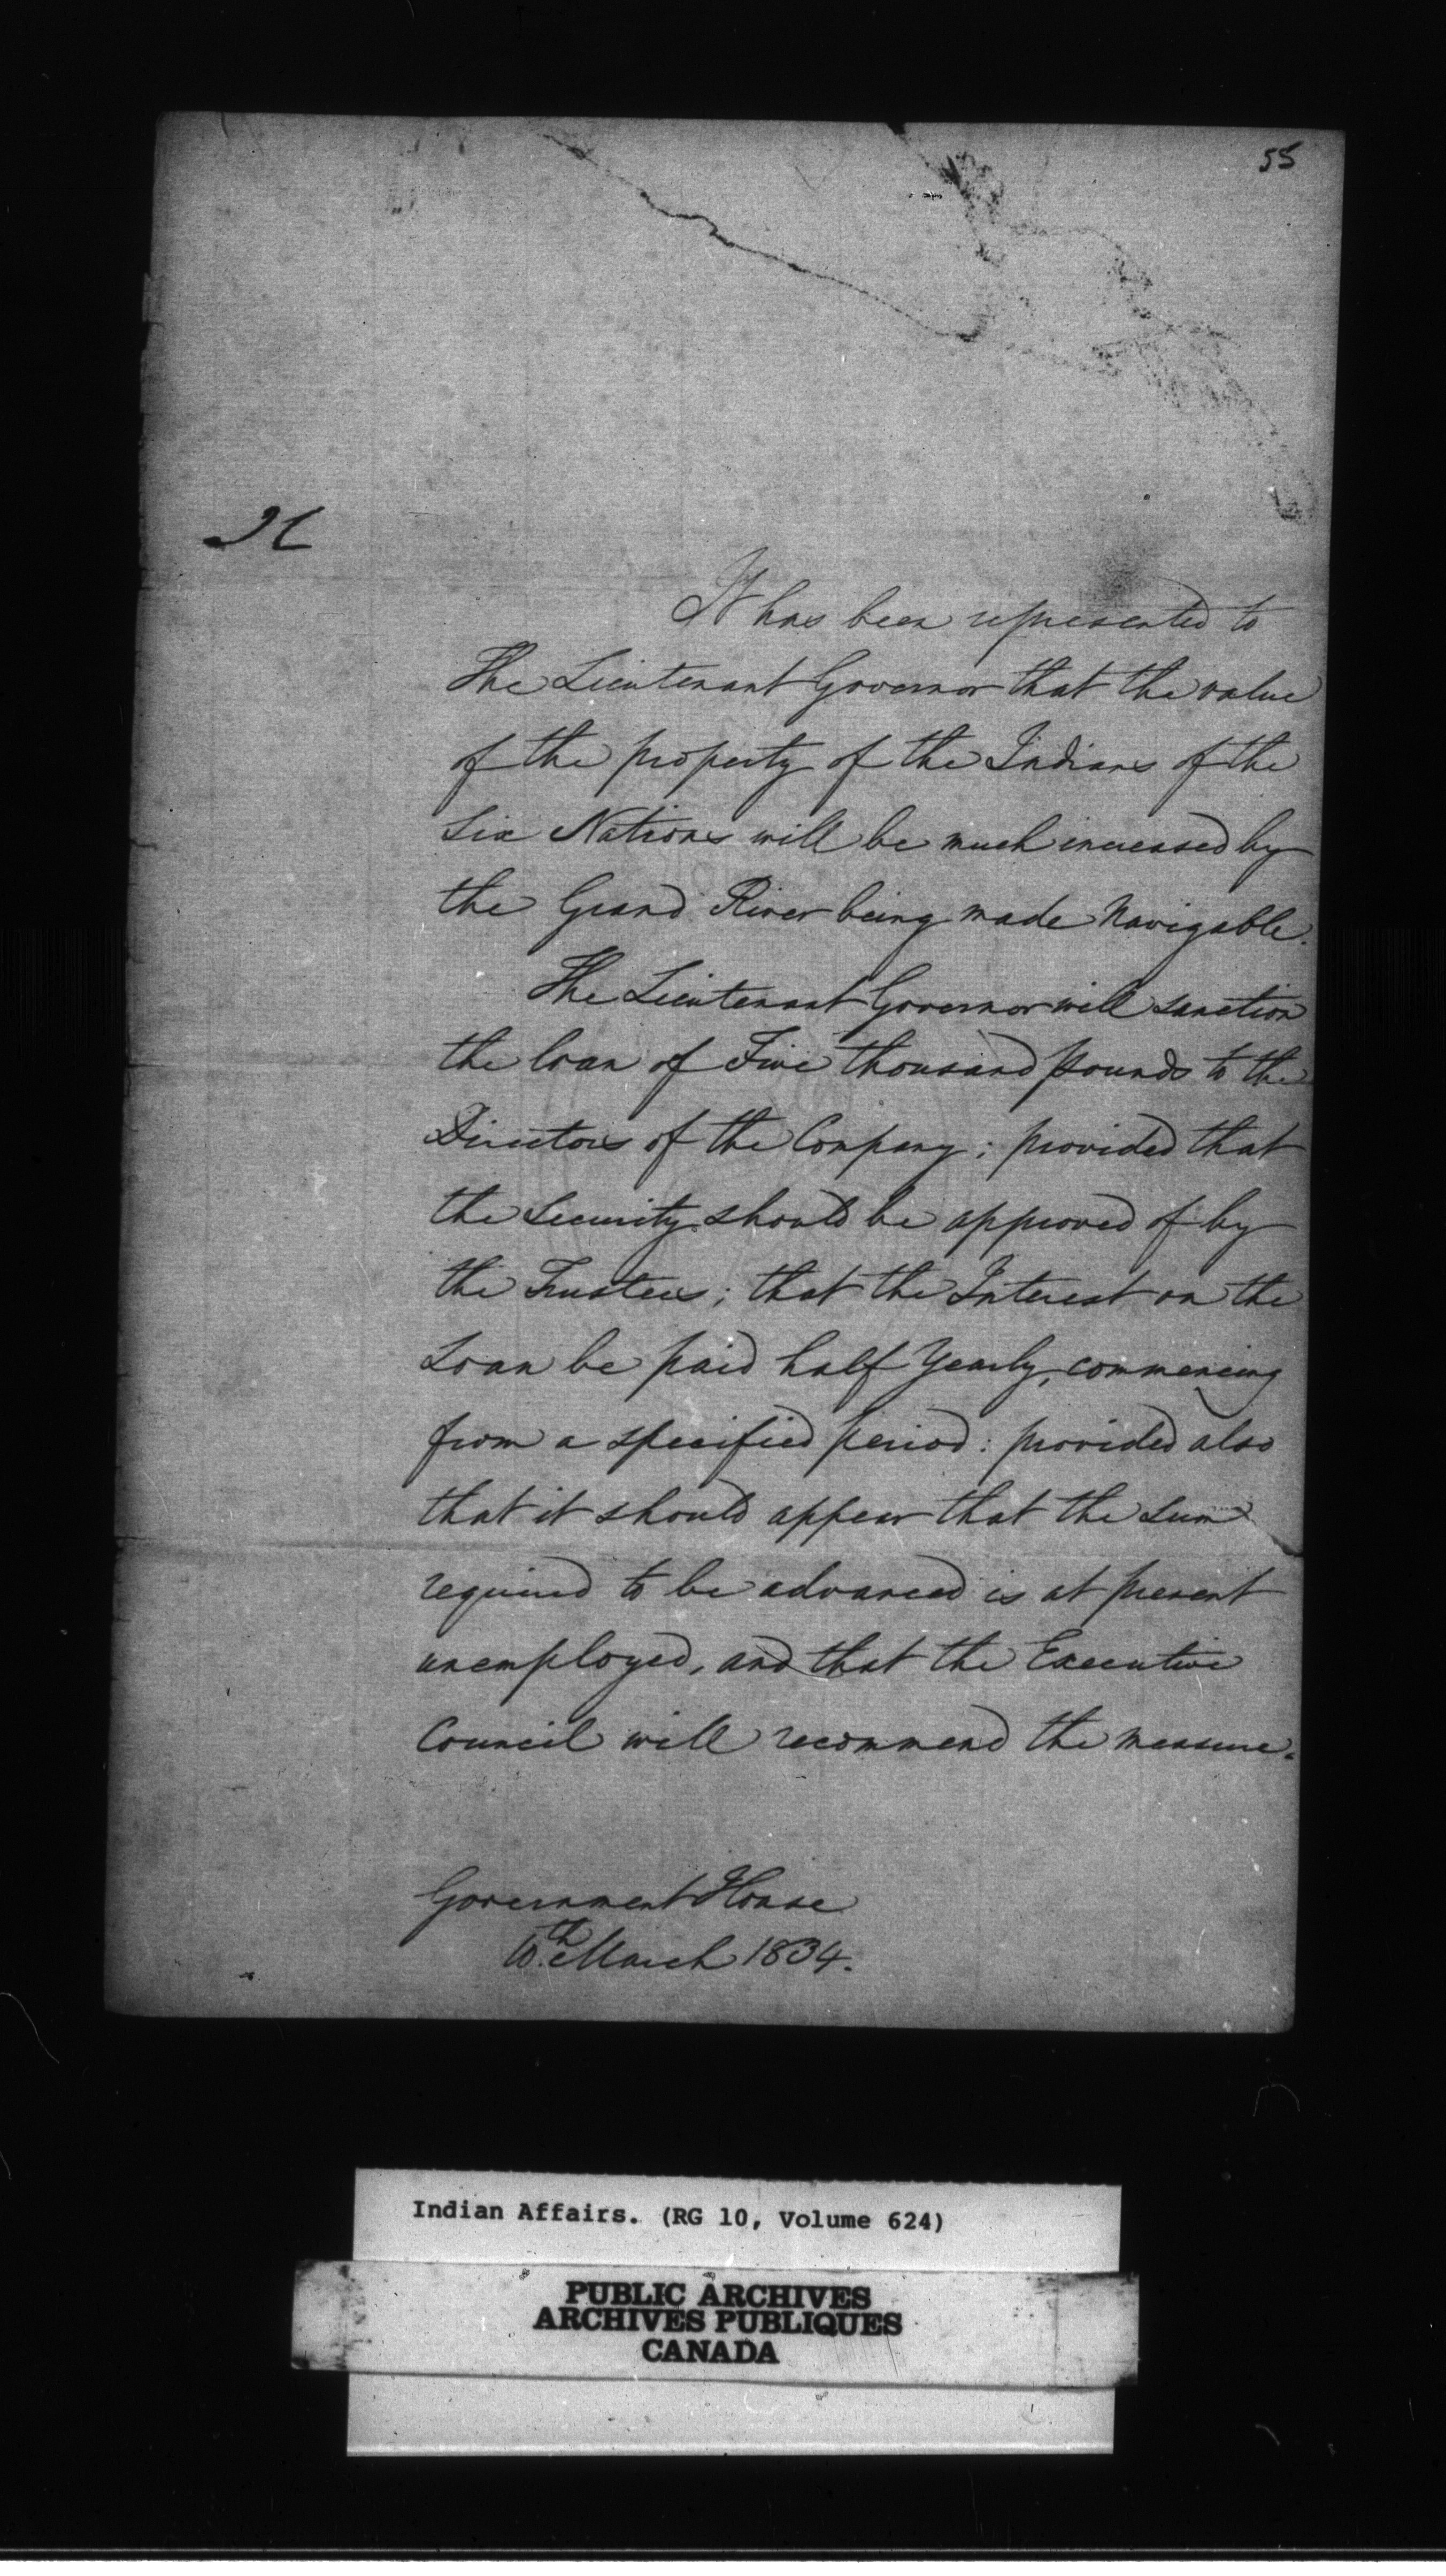 55
It has been represented to
The Lieutenant Governor that the value
of the property of the Indians of the
Six Nations will be much increased by
the Grand River being made Navigable.
The Lieutenant Governor will sanction
the loan of Five thousand pounds to the
Directors of the Company; provided that
the Security should be approved of by
the Trustees; that the Interest on the
Loan be paid half Yearly, commencing
from a specified period: provided also
that it should appear that the sum
required to be advanced is at present
unemployed, and that the Executive
Council will recommend the measure.
Government House
10th March 1834.
Indian Affairs. (RG 10, Volume 624)
PUBLIC ARCHIVES
ARCHIVES PUBLIQUES
CANADA